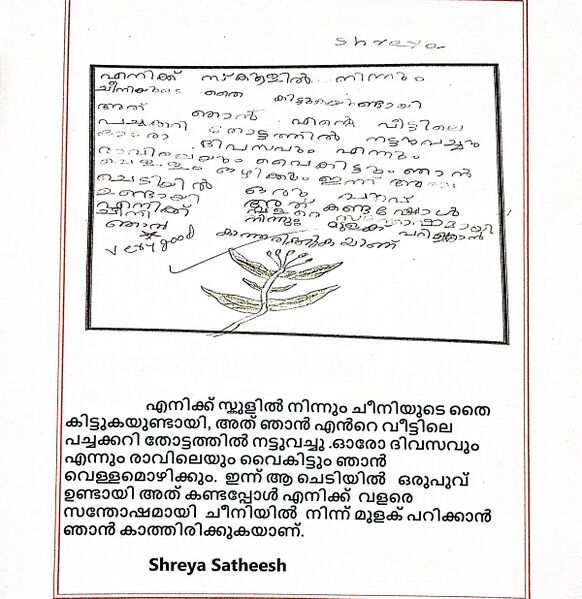 Shreya
എനിക്ക് സ്കൂളിൽ നിന്നും
ചീനിയുടെ തൈ കിട്ടുകയുണ്ടായി
അത് ഞാൻ എന്റെ വീട്ടിലെ
പച്ചക്കറി തോട്ടത്തിൽ നട്ടുവച്ചു
ഓരോ ദിവസവും എന്നും
രാവിലെയും വൈകിട്ടും ഞാൻ
വെള്ളം ഒഴിക്കും ഇന്ന് ആ
ചെടിയിൽ ഒരു പൂവ്
ഉണ്ടായി അത് കണ്ടപ്പോൾ
എനിക്ക് വളരെ സന്തോഷമായി
ചീനി നിന്നും മുളക് പറിക്കാൻ
ഞാൻ കാത്തിരിക്കുകയാണ്
very good
എനിക്ക് സ്കൂളിൽ നിന്നും ചീനിയുടെ തൈ
കിട്ടുകയുണ്ടായി, അത് ഞാൻ എൻറെ വീട്ടിലെ
പച്ചക്കറി തോട്ടത്തിൽ നട്ടുവച്ചു .ഓരോ ദിവസവും
എന്നും രാവിലെയും വൈകിട്ടും ഞാൻ
വെള്ളമൊഴിക്കും. ഇന്ന് ആ ചെടിയിൽ ഒരുപുവ്
ഉണ്ടായി അത് കണ്ടപ്പോൾ എനിക്ക് വളരെ
സന്തോഷമായി ചീനിയിൽ നിന്ന് മുളക് പറിക്കാൻ
ഞാൻ കാത്തിരിക്കുകയാണ്.
Shreya Satheesh